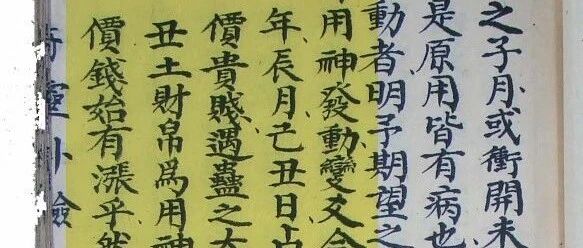 之子月或衝開未
是原用皆有病也
動者明予期望之
用神發動變爻
年辰月己丑日占
價貴賤遇蠱之大
丑土財帛爲用神
價錢始有漲乎然
靈卦驗